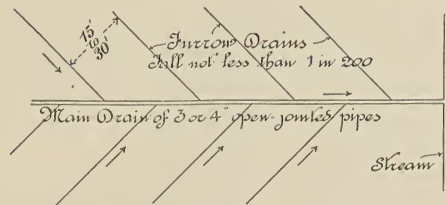 15'
to
30'
Furrow Drains
Fall not less than 1 in 200
Main Drain of 3 or 4" open-jointed pipes
Stream